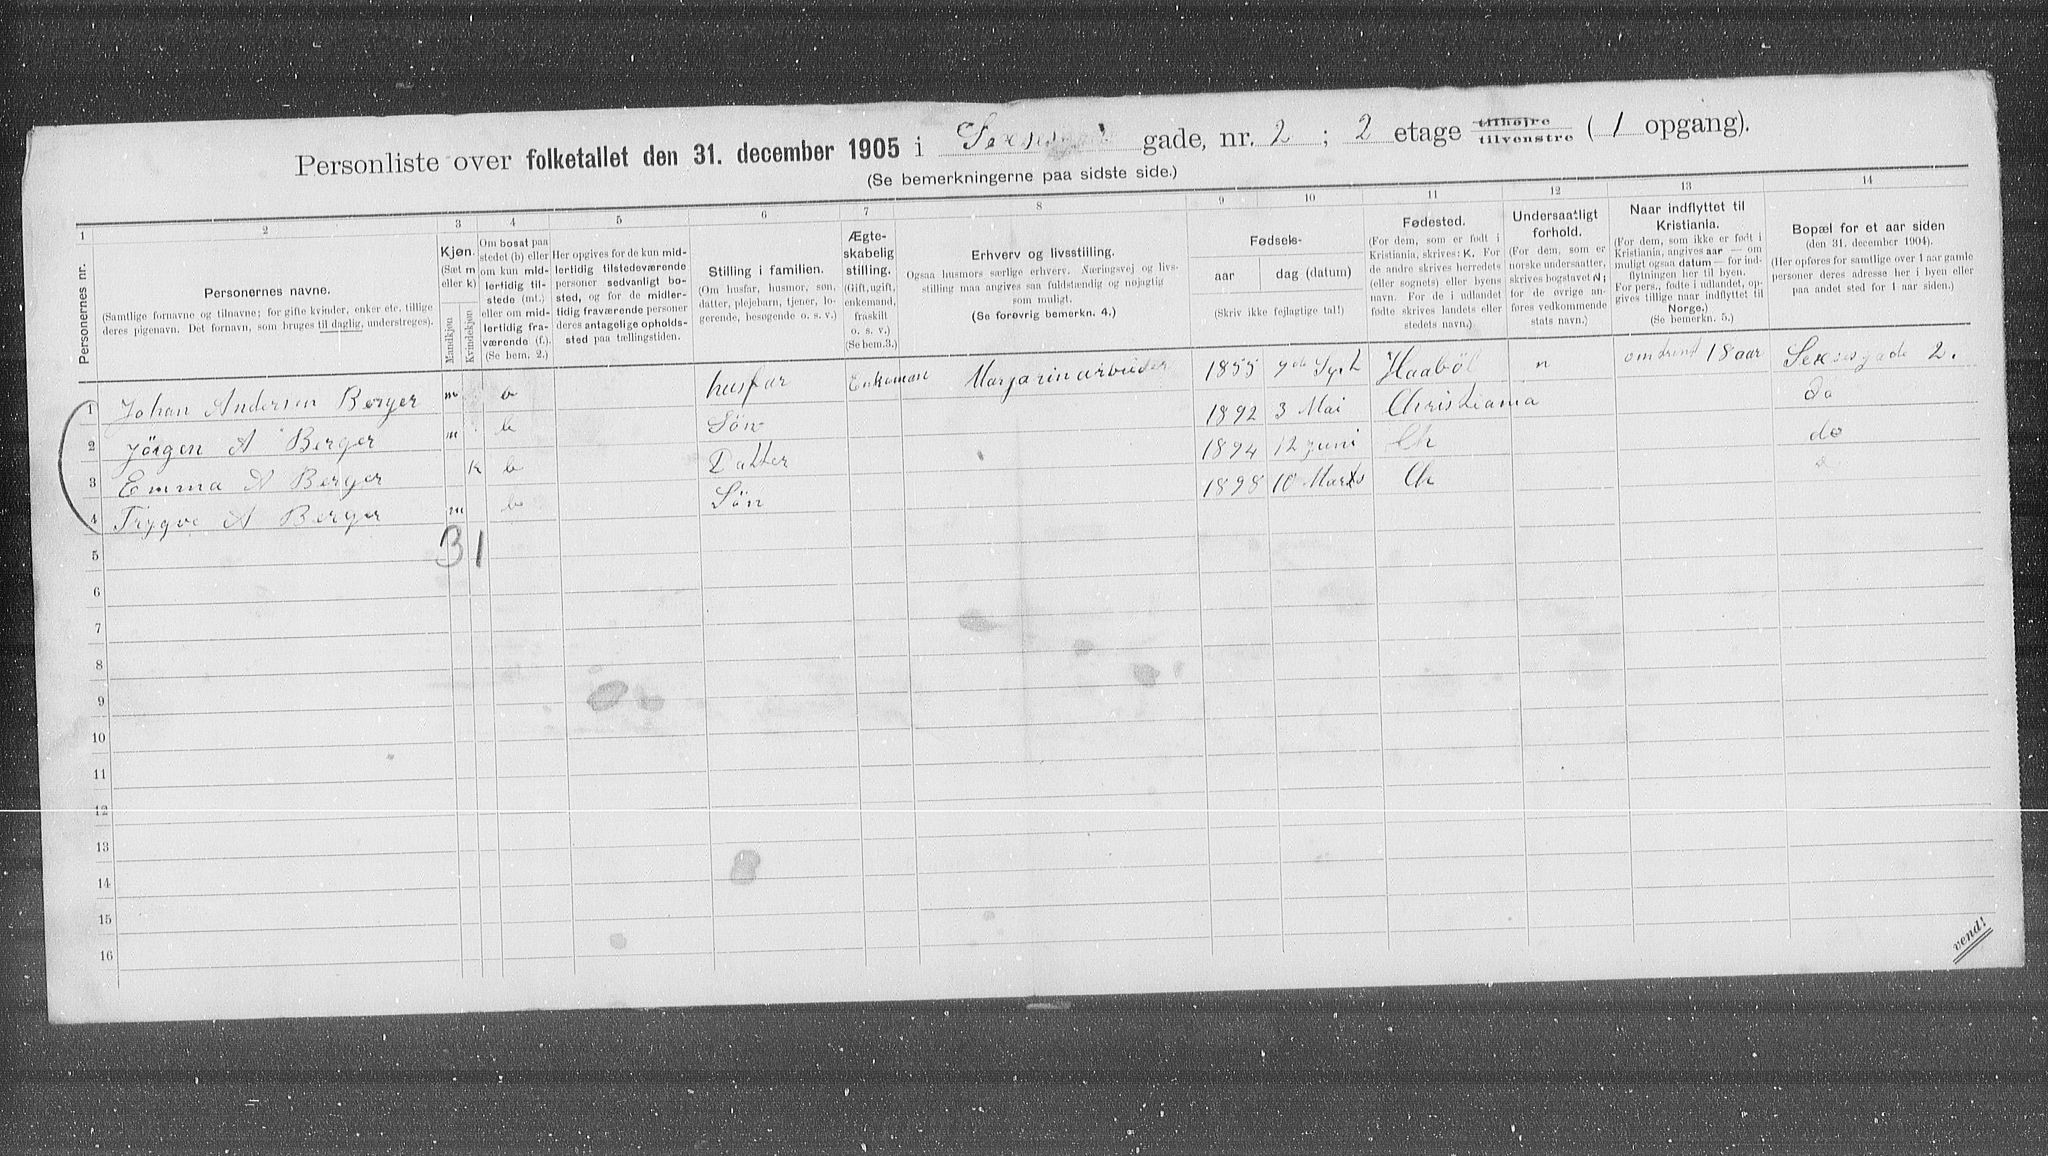 Personliste over folketallet den 31. december 1905 i gade, nr. 2 ; 2 etage tilhøjre tilvenstre ( 1 opgang).
(Se bemerkningerne paa sidste side.)
1 2 3 4 5 6 7 8 9 10 11 12 13 14
Personernes nr.
Personernes navne.
(Samtlige fornavne og tilnavne; for gifte kvinder, enker etc. tillige
deres pigenavn. Det fornavn, som bruges til daglig, understreges).
Kjøn.
(Sæt m
eller k)
Mandkjøn
Kvindekjøn
Om bosat paa
stedet (b) eller
om kun mid-
lertidig til-
stede (mt.)
eller om mid-
lertidig fra-
værende (f.).
(Se bem. 2.)
Her opgives for de kun mid-
lertidig tilstedeværende
personer sedvanligt bo-
sted, og for de midler-
tidig fraværende personer
deres antagelige opholds-
sted paa tællingstiden.
Stilling i familien.
(Om husfar, husmor, søn,
datter, plejebarn, tjener, lo-
gerende, besøgende o. s. v.)
Ægte-
skabelig
stilling.
(Gift, ugift,
enkemand,
fraskilt
o. s. v.)
(Se bem. 3.)
Erhverv og livsstilling.
Ogsaa husmors særlige erhverv. Næringsvej og livs-
stilling maa angives saa fuldstændig og nøjagtig
som muligt.
(Se forøvrig bemerkn. 4.)
Fødsels-
aar
dag (datum)
(Skriv ikke fejlagtige tal!)
Fødested.
(For dem, som er født i
Kristiania, skrives: K. For
de andre skrives herredets
(eller sognets) eller byens
navn. For de i udlandet
fødte skrives landets eller
stedets navn.)
Undersaatligt
forhold.
(For dem, som er
norske undersaatter,
skrives bogstavet N;
for de øvrige an-
føres vedkommende
stats navn.)
Naar indflyttet til
Kristiania.
(For dem, som ikke er født i
Kristiania, angives aar — om
muligt ogsaa datum — for ind-
flytningen her til byen.
For pers., fødte i udlandet, op-
gives tillige naar indflyttet til
Norge.)
(Se bemerkn. 5.)
Bopæl for et aar siden
(den 31. december 1904).
(Her opføres for samtlige over 1 aar gamle
personer deres adresse her i byen eller
paa andet sted for 1 aar siden.)
1 Johan Andersen Berger m b husfar Enkeman Margarinarbeider 1855 Haaböl n omtrent 18 aar Seksesgade 2.
2 Jörgen A Berger m b Sön 1892 3 Mai Christiania do
3 Emma A Berger k b Datter 1894 12 juni Ch do
4 Trygve A Berger m b Sön 1898 10 Marts Ch
5 3 1
6
7
8
9
10
11
12
13
14
15
16
vend!